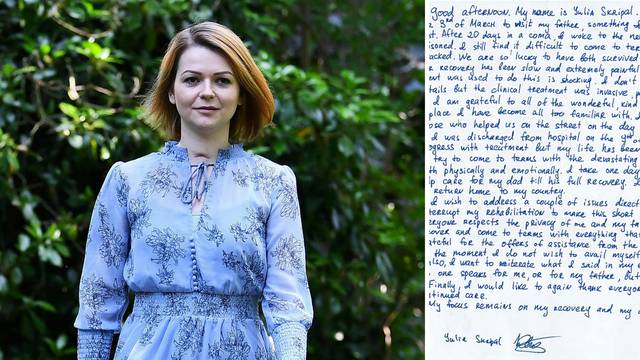 good afternoon. My name is Yulia Skripal.
3rd of March to visit my father, something
it. After 20 days in a coma, I woke to the
soned. I still find it difficult to come to
acked. We are so lucky to have both survived
recovery has been slow and extremely painful
was used to do this is shocking. I don't
tails but the clinical treatment was invasive,
I am grateful to all of the wonderful, kind
place I have become all too familiar with.
ose who helped us on the street on the day
I was discharged from hospital on the
ogress with treatment but my life has been
try to come to terms with the devastating
th physically and emotionally. I take one day
p care for my dad till his full recovery.
return home to my country.
I wish to address a couple of issues direct
terrupt my rehabilitation to make this short
eryone respects the privacy of me and my
over and come to terms with everything that
ateful for the offers of assistance from the
the moment, I do not wish to avail myself
also, I want to reiterate what I said in my
one speaks for me, or for my father, but
Finally, I would like to again thank everyone
tinued care.
My focus remains on my recovery and my
Yulia Skripal